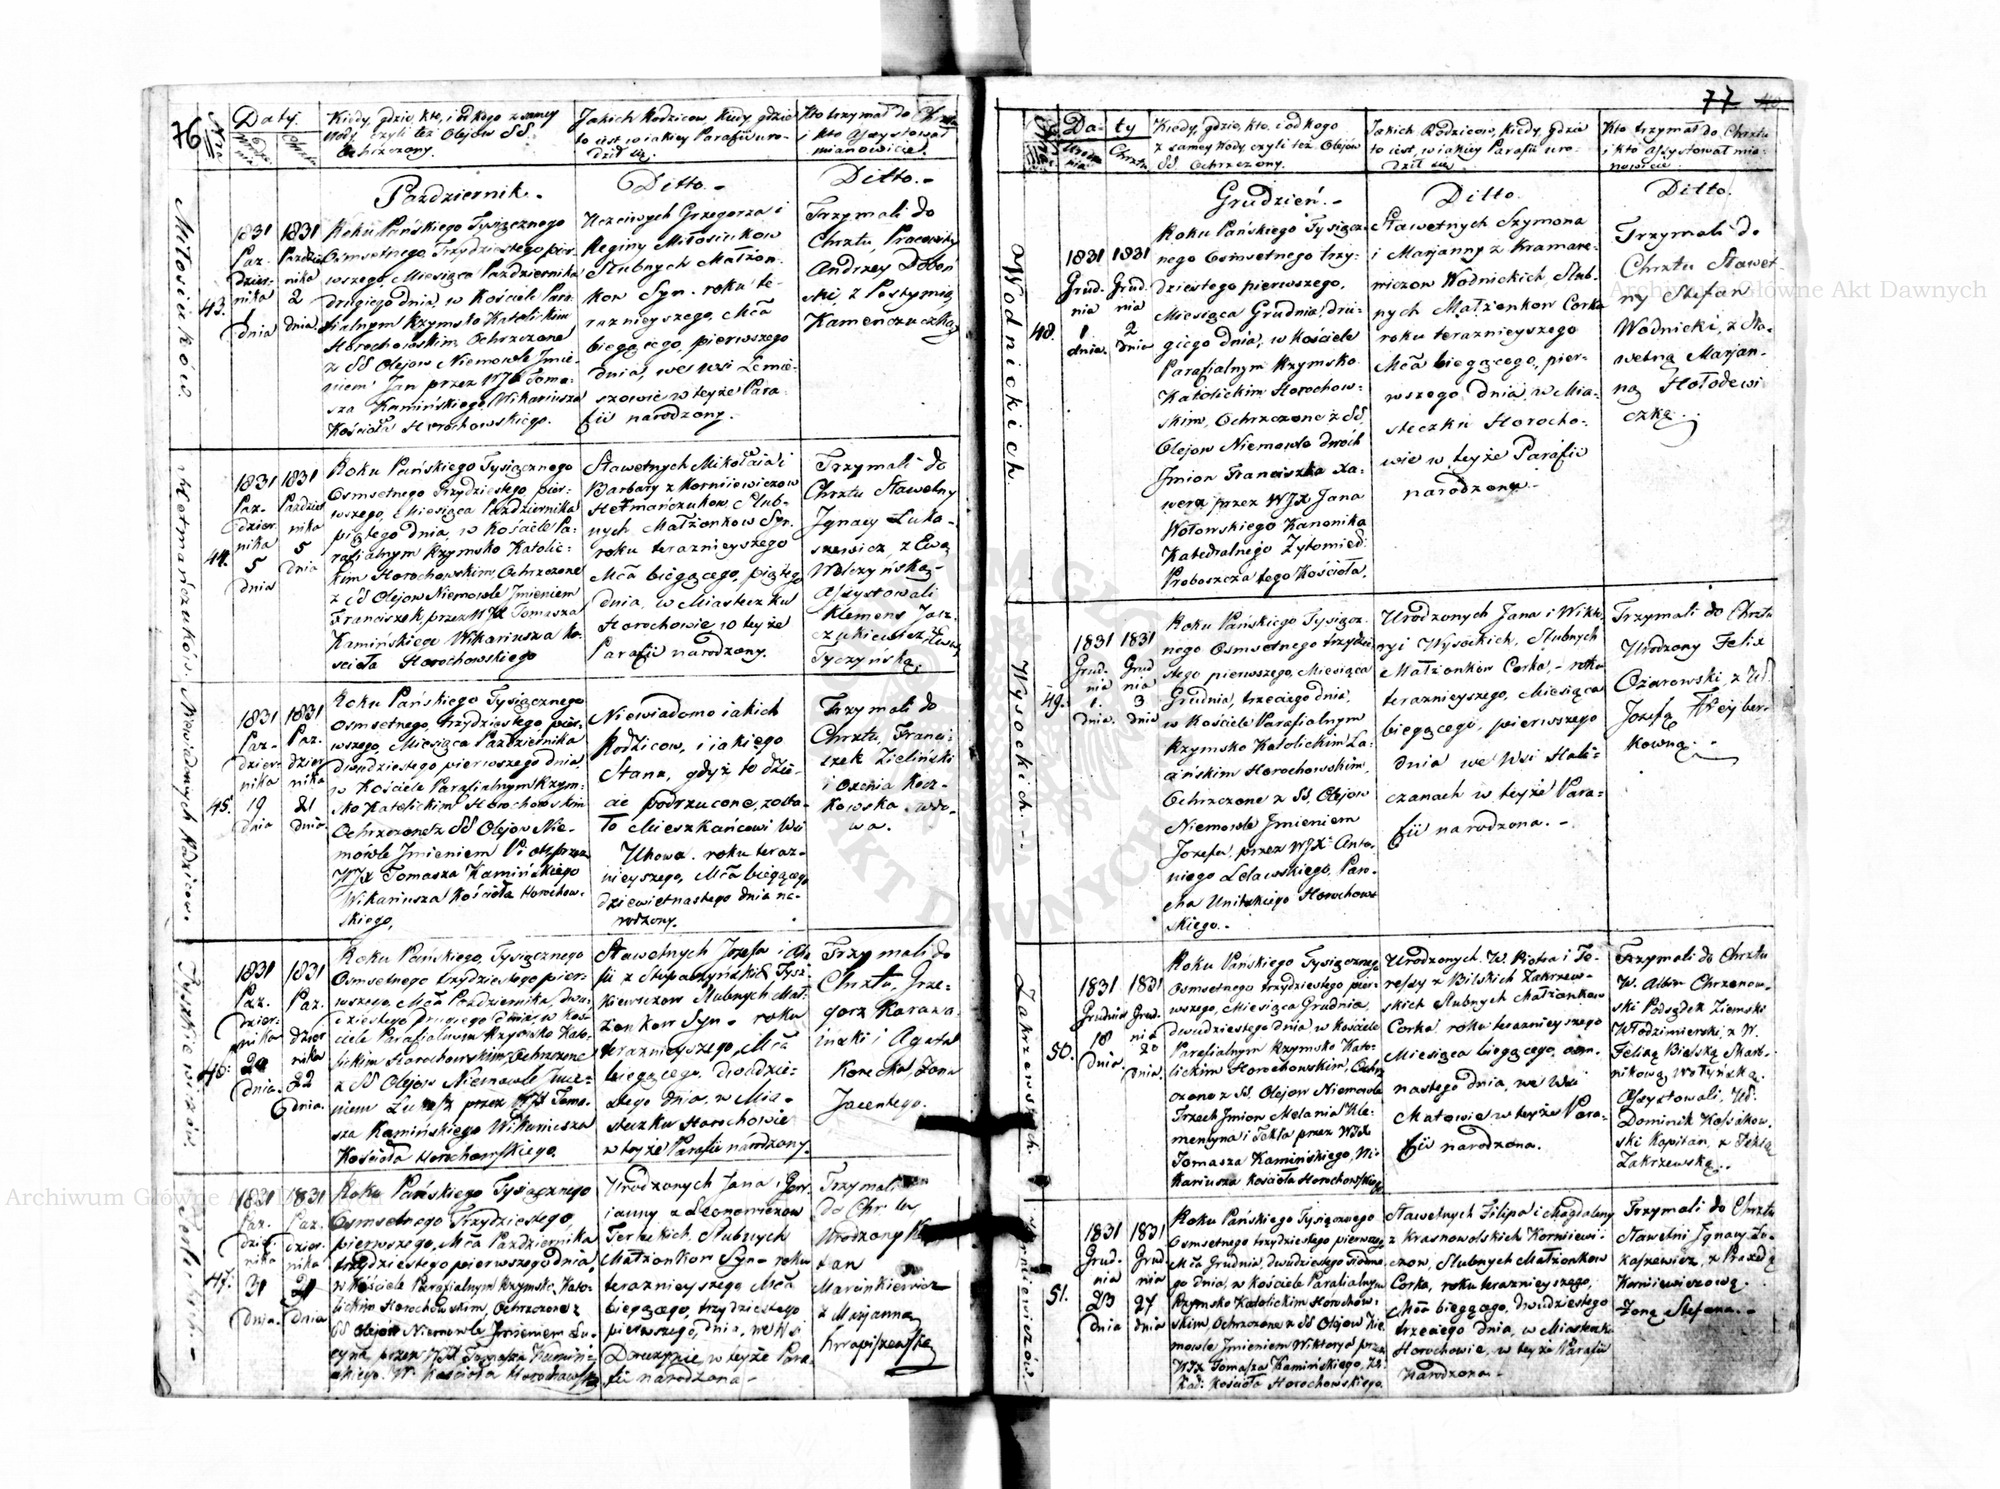 76
Nra
Daty
Urodze-
nia
Chrztu
Kiedy, gdzie, kto, i od kogo z samey
wody czyli też Olejów SS.
Ochrzczony.
Jakich Rodzicow, kiedy gdzie
to iest w iakiey Parafii uro-
dził się.
Kto trzymał do Chrztu
i kto assystował
mianowicie.
Pazdziernik.-
Ditto.-
Ditto.-
Miłosiuków.
43.
1831
Paz-
dzier-
nika
1
dnia
1831
Pazdzier
nika
2
dnia
Roku Pańskiego Tysiącznego
Osmsetnego Trzydziestego pier-
wszego, Miesiąca Pazdziernika
drugiego dnia, w Kościele Para-
fialnym Rzymsko Katolickim
Horochowskim Ochrzczone
z SS Olejow Niemowle Jmie-
niem Jan przez WJX Toma-
sza Kamińskiego Wikariusza
Kościoła Horochowskiego.
Uczciwych Grzegorza i
Reginy Miłosiukow
Slubnych Małżon-
kow Syn. roku te-
raznieyszego, Mca
biegącego, pierwszego
dnia, we wsi Lemie-
szowie w teyże Para-
fii narodzony.
Trzymali do
Chrztu, Pracowity
Andrzey
z Postymią
Hetmańczuków.
44.
1831
Paz-
dzier-
nika
5
dnia
1831
Pazdzier
nika
5
dnia
Roku Pańskiego Tysiącznego
Osmsetnego Trzydziestego pier-
wszego, Miesiąca Pazdziernika
piątego dnia, w Kościele Pa-
rafialnym Rzymsko Katolic-
kim Horochowskim, Ochrzczone
z SS Olejow Niemowle Jmieniem
Franciszek przez WJX Tomasza
Kamińskiego Wikariusza Ko-
scioła Horochowskiego
Sławetnych Mikołaia i
Barbary z Korniiewiczow
Hetmańczukow Slub-
nych Małżonkow Syn.
roku teraznieyszego
Mca biegącego, piątego
dnia, w Miasteczku
Horochowie w teyże
Parafii narodzony.
Trzymali do
Chrztu Sławetny
Jgnacy Łuka-
szewicz, z Ewą
Wolczyńską.
Assystowali
Klemens
z Ewą
Tyczyńską.
Niewiadomych Rodzicow.
45.
1831
Paz-
dzier-
nika
19
dnia
1831
Paz-
dzier
nika
21
dnia.
Roku Pańskiego Tysiącznego
Osmsetnego, trzydziestego pier-
wszego, Miesiąca Pazdziernika
dwudziestego pierwszego dnia,
w Kościele Parafialnym Rzym-
sko Katolickim Horochowskim
Ochrzczone z SS Olejow Nie-
mowle Jmieniem Piotr, przez
WJX Tomasza Kamińskiego
Wikariusza Kościoła Horochow-
skiego,
Niewiadomo iakich
Rodzicow, i iakiego
Stanu, gdyż to dzie-
cie podrzucone, zosta-
ło Mieszkańcowi Wsi
Uhowa. roku teraz-
nieyszego, Mca biegącego
dziewietnastego dnia na-
rodzony.
Trzymali do
Chrztu, Franci-
szek Zieliński
i Oxenia Kocz-
kowska
wa.
Tyszkiewiczów.
46.
1831
Paz.
dzier-
nika
20
dnia.
1831
Paz.
dzier
nika
22
dnia.
Roku Pańskiego, Tysiącznego
Osmsetnego trzydziestego pier-
wszego, Mca Pazdziernika, dwu-
dziestego drugiego dnia, w Koś-
ciele Parafialnym Rzymsko Kato-
lickim Horochowskim, Ochrzczone
z SS Olejow Niemowle Jmie-
niem Łukasz przez WJX Toma-
sza Kamińskiego Wikariusza
Kościoła Horochowskiego.
Sławetnych Jozefa i
z Tysz-
kiewiczow Slubnych Mał-
żonkow Syn- roku
teraznieyszego, Mca
biegącego, dwudzie-
stego dnia, w Mia-
steczku Horochowie
w teyże Parafii narodzony.
Trzymali do
Chrztu, Grze-
gorz
i Agata
Zona
Jacentego.
47.
1831
Paz-
dzier-
nika
31
dnia.
1831
Paz.
dzier.
nika
31
dnia
Roku Pańskiego Tysiącznego
Osmsetnego Trzydziestego,
pierwszego, Mca Pazdziernika
trzydziestego pierwszego dnia,
w Kościele Parafialnym Rzymsko Kato-
lickim Horochowskim, Ochrzczone z
SS Olejow Niemowle Jmieniem Lu-
cyna, przez WJX Tomasza Kamiń-
skiego. W. Kościoła Horochowskiego
Urodzonych Jana i
z Leonowiczow
Terleckich, Slubnych
Małżonkow Syn- roku
teraznieyszego Mca
biegącego, trzydziestego
pierwszego, dnia, we Wsi
w teyże Para-
fii narodzona-
Trzymali
do Chrztu
Urodzony
Marcinkiewicz
z Marjanną
77
Nra
Da-
ty
Urodze-
nia
Chrztu
Kiedy, gdzie, kto, i od kogo
z samey wody, czyli też Olejow
SS. Ochrzczony.
Jakich Rodzicow, kiedy, gdzie
to iest, w iakiey Parafii uro-
dził się
Kto trzymał do Chrztu
i kto assystował mia-
nowicie
Grudzień.-
Ditto.
Ditto.
Wodnickich
48.
1831
Grud-
nia
1.
dnia.
1831
Grud-
nia
2
dnia
Roku Pańskiego Tysiącz-
nego Osmsetnego trzy-
dziestego pierwszego,
Miesiąca Grudnia, dru-
giego dnia, w Kościele
Parafialnym Rzymsko
Katolickim Horochow-
skim, Ochrzczone z SS.
Olejow Niemowle dwoch
Jmion Franciszka Xa-
wera przez WJX Jana
Wołowskiego Kanonika
Katedralnego Żytomier:
Proboszcza tego Kościoła.
Sławetnych Szymona
i Marjanny z Kramare-
wiczow Wodnickich, Slub-
nych Małżonkow Corka
roku teraznieyszego
Mca biegącego, pier-
wszego dnia, w Mia-
steczku Horocho-
wie w teyże Parafii
narodzona.-
Trzymali do
Chrztu Sławet-
ny Stefan
Wodnicki, z Sła-
wetną Marjan-
ną Hołodewi-
czką.
Wysockich.-
49.
1831
Grud-
nia
1.
dnia.
1831
Grud
nia
3
dnia
Roku Pańskiego Tysiącz-
nego Osmsetnego trzydzie-
stego pierwszego, Miesiąca
Grudnia, trzeciego dnia,
w Kościele Parafialnym
Rzymsko Katolickim Ła-
cińskim Horochowskim,
Ochrzczone z SS. Olejow
Niemowle Jmieniem
Jozefa, przez WJX Anto-
niego Lelawskiego, Paro-
cha Unitskiego Horochow-
skiego.-
Urodzonych Jana i Wikto-
ryi Wysockich, Slubnych
Małżonkow Corka,- roku
teraznieyszego, Miesiąca
biegącego, pierwszego
dnia we Wsi Hali-
czanach w teyże Para-
fii narodzona.-
Trzymali do Chrztu
Urodzony Felix
Ożarowski, z Ur.
Jozefą Freyber-
kowną.-
Zakrzewskich.
50.
1831
Grudnia
18
dnia.
1831
Grud-
nia
20
dnia.
Roku Pańskiego Tysiącznego
Osmsetnego trzydziestego pier-
wszego, Miesiąca Grudnia,
dwudziestego dnia, w Kościele
Parafialnym Rzymsko Kato-
lickim Horochowskim, Ochrz-
czone z SS. Olejow Niemowle
Trzech Jmion Melania Kle-
mentyna i Tekla przez WJX
Tomasza Kamińskiego, Wi-
kariusza Kościoła Horochowskiego
Urodzonych W. Piotra i Te-
ressy z Bilskich Zakrzew-
skich Slubnych Małżonkow
Corka roku teraznieyszego
Miesiąca biegącego, osm-
nastego dnia, we Wsi
Matowie w teyże Para-
fii narodzona.
Trzymali do Chrztu
W. Albin Chrzanow-
ski Podsędek Ziemski
Włodzimierski, z W.
Felixą Bielską Skarb-
nikową Wołyńską.
Assystowali, Ur.
Dominik Kossakow-
ski Kapitan, z Teklą
Zakrzewską.
Korniiewiczow.
51.
1831
Grud-
nia
23
dnia
1831
Grud
nia
27
dnia
Roku Pańskiego Tysiącznego
Osmsetnego trzydziestego pierwszego
Mca Grudnia, dwudziestego siodme-
go dnia, w Kościele Parafialnym
Rzymsko Katolickim Horochow-
skim Ochrzczone z SS Olejow Nie-
mowle Jmieniem Wiktorya przez
WJX Tomasza Kamińskiego,
Kościoła Horochowskiego.
Sławetnych Filipa i Magdaleny
z Krasnowolskich Korniiewi-
czow, Slubnych Małżonkow
Corka, roku teraznieyszego,
Mca biegącego, dwudziestego
trzeciego dnia, w Miasteczku
Horochowie, w teyże Parafii
Narodzona.-
Trzymali do Chrztu
Sławetni Jgnacy Łu-
kaszewicz, z
Korniewiczową.
Żoną Stefana.-
Archiwum Główne Akt Dawnych
Archiwum Główne Akt Dawnych